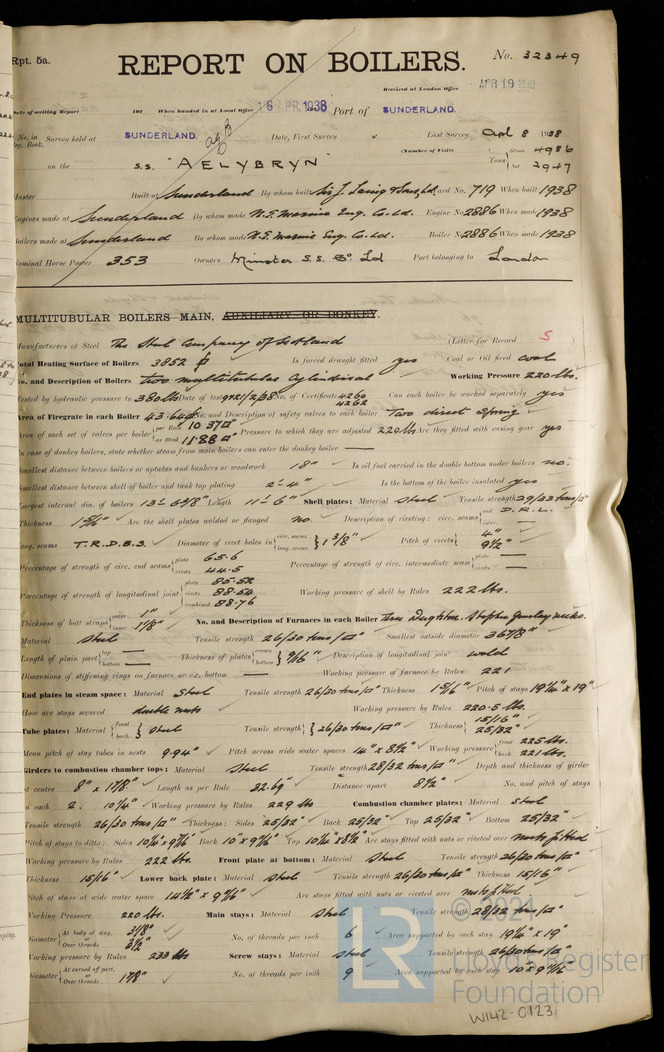 Rpt. 5a.
REPORT ON BOILERS.
No. 32349
Received at London Office APR 19 1938
Date of writing Report 193 When handed in at Local Office 16 APR. 1938 Port of SUNDERLAND.
No. in Survey held at SUNDERLAND. Date, First Survey Last Survey April 8 1938
Reg. Book. (Number of Visits Gross 4986
on the S.S. "AELYBRYN" Tons Net 2947
Master Built at Sunderland By whom built Sir J. Laing & Sons, Ld. Yard No. 719 When built 1938
Engines made at Sunderland By whom made N.E. Marine Eng. Co. Ld. Engine No. 2886 When made 1938
Boilers made at Sunderland By whom made N.E. Marine Eng. Co. Ld. Boiler No. 2886 When made 1938
Nominal Horse Power 353 Owners Minster S.S. Co Ld Port belonging to London
MULTITUBULAR BOILERS MAIN, AUXILIARY OR DONKEY.
Manufacturers of Steel The Steel Company of Scotland (Letter for Record S )
Total Heating Surface of Boilers 3852 Is forced draught fitted yes Coal or Oil fired coal
No. and Description of Boilers two multitubular cylindrical Working Pressure 220 lbs.
Tested by hydraulic pressure to 380 lbs Date of test No. of Certificate 4260 4262 Can each boiler be worked separately yes
Area of Firegrate in each Boiler 43.64 No. and Description of safety valves to each boiler Two direct spring
Area of each set of valves per boiler per Rule 10.37 as fitted 11.88 Pressure to which they are adjusted 220 lbs Are they fitted with easing gear yes
In case of donkey boilers, state whether steam from main boilers can enter the donkey boiler —
Smallest distance between boilers or uptakes and bunkers or woodwork 18" Is oil fuel carried in the double bottom under boilers no.
Smallest distance between shell of boiler and tank top plating 2'-4" Is the bottom of the boiler insulated yes
Largest internal dia. of boilers 13'-6 3/8" Length 11'-6" Shell plates: Material Steel Tensile strength 29/33 tons/□"
Thickness 1 5/16" Are the shell plates welded or flanged no. Description of riveting: circ. seams end D.R.L. inter
Long. seams T.R.D.B.S. Diameter of rivet holes in circ. seams long. seams 1 3/8" Pitch of rivets 4" 9 1/2"
Percentage of strength of circ. end seams plate 65.6 rivets 44.5 Percentage of strength of circ. intermediate seam plate — rivets —
Percentage of strength of longitudinal joint plate 85.52 rivets 88.54 combined 88.76 Working pressure of shell by Rules 222 lbs.
Thickness of butt straps outer 1" inner 1 1/8" No. and Description of Furnaces in each Boiler Three Deighton. Stephen Gourlay necks.
Material steel Tensile strength 26/30 tons/□" Smallest outside diameter 36 7/8"
Length of plain part top — bottom — Thickness of plates crown bottom 9/16" Description of longitudinal joint weld
Dimensions of stiffening rings on furnace or c.c. bottom — Working pressure of furnace by Rules 221
End plates in steam space: Material Steel Tensile strength 26/30 tons/□" Thickness 1 5/16" Pitch of stays 19 1/4" x 19"
How are stays secured double nuts Working pressure by Rules 220.5 lbs.
Tube plates: Material front back steel Tensile strength 26/30 tons/□" Thickness 15/16" 25/32"
Mean pitch of stay tubes in nests 9.94" Pitch across wide water spaces 14" x 8 1/2" Working pressure front 225 lbs. back 221 lbs.
Girders to combustion chamber tops: Material Steel Tensile strength 28/32 tons/□" Depth and thickness of girder
at centre 8" x 1 7/8" Length as per Rule 32.69" Distance apart 8 1/2" No. and pitch of stays
in each 2. 10 1/4" Working pressure by Rules 229 lb Combustion chamber plates: Material steel
Tensile strength 26/30 tons/□" Thickness: Sides 25/32" Back 25/32" Top 25/32" Bottom 25/32"
Pitch of stays to ditto: Sides 10 1/4" x 9 7/16" Back 10" x 9 7/16" Top 10 1/4" x 8 1/2" Are stays fitted with nuts or riveted over nuts fitted
Working pressure by Rules 222 lbs. Front plate at bottom: Material Steel Tensile strength 26/30 tons/□"
Thickness 15/16" Lower back plate: Material steel Tensile strength 26/30 tons/□" Thickness 15/16"
Pitch of stays at wide water space 14 1/2" x 9 7/16" Are stays fitted with nuts or riveted over nuts fitted.
Working Pressure 220 lbs. Main stays: Material Steel Tensile strength 28/32 tons/□"
Diameter At body of stay, or Over threads 3 1/8" 3 1/2" No. of threads per inch 6 Area supported by each stay 19 1/4" x 19"
Working pressure by Rules 233 lbs Screw stays: Material steel Tensile strength 26/30 tons/□"
Diameter At turned off part, or Over threads 1 7/8" No. of threads per inch 9 Area supported by each stay 10 x 9 7/16"
© 2021
Lloyd's Register
Foundation
LR
W142-0123